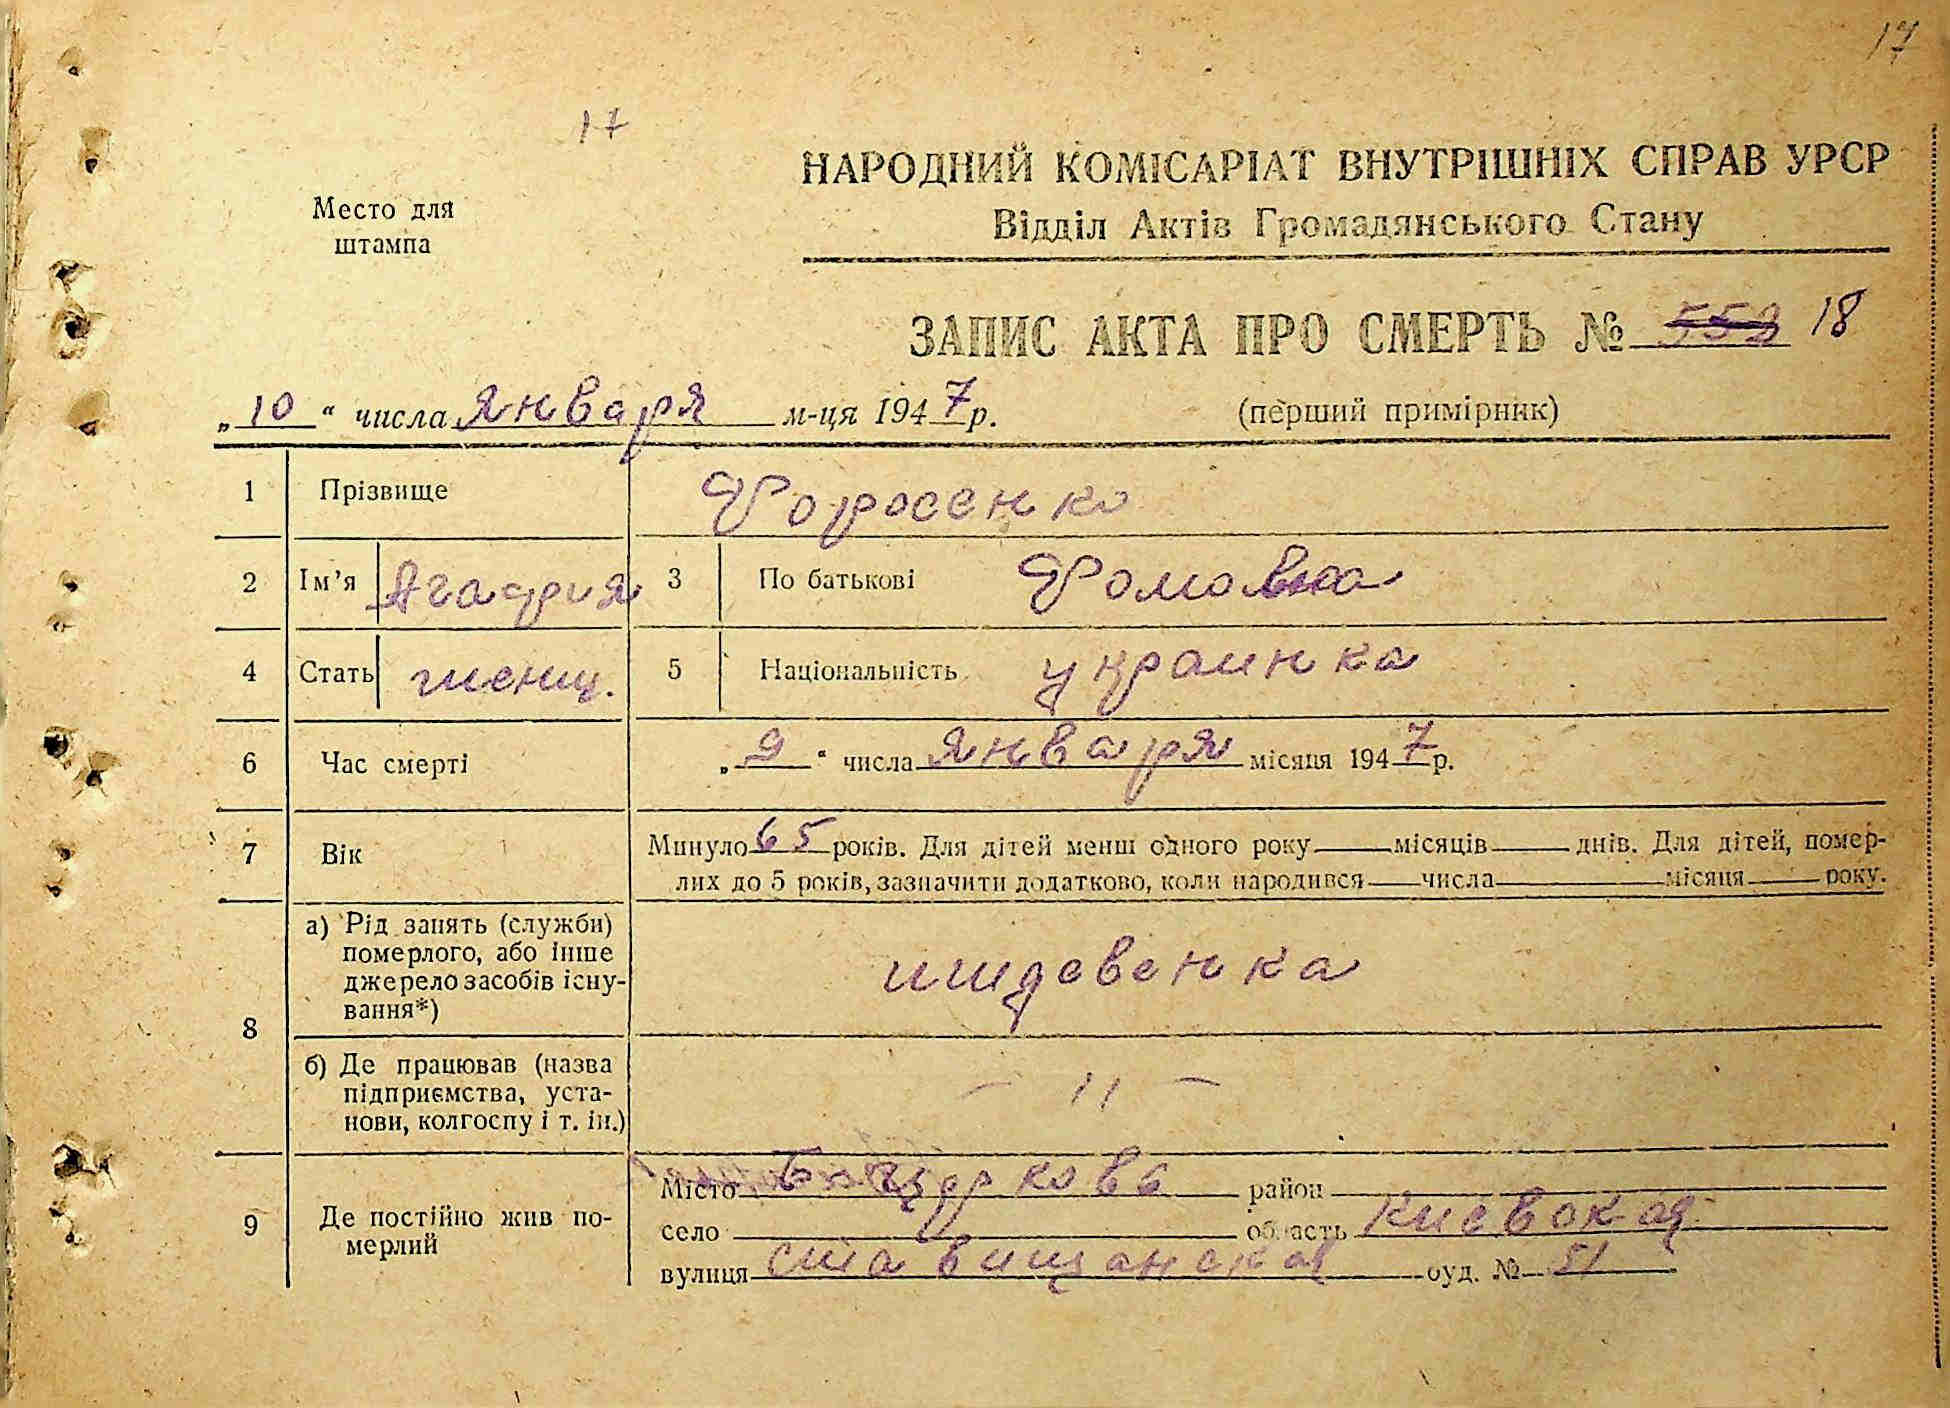 17
17
Место для
штампа
НАРОДНИЙ КОМІСАРІАТ ВНУТРІШНІХ СПРАВ УРСР
Відділ Актів Громадянського Стану
ЗАПИС АКТА ПРО СМЕРТЬ № 552 18
„10“ числа января м-ця 1947р.
(перший примірник)
1 Прізвище Форосенко
2 Ім’я Агафия 3 По батькові Фомовна
4 Стать женщ. 5 Національність украинка
6 Час смерті „9“ числа января місяця 1947р.
7 Вік Минуло 65 років. Для дітей менш одного року місяців днів. Для дітей, помер-
лих до 5 років, зазначити додатково, коли народився числа місяця року.
8 а) Рід занять (служби)
померлого, або інше
джерело засобів існу-
вання*) иждевенка
б) Де працював (назва
підприємства, уста-
нови, колгоспу і т. ін.) — 11 —
9 Де постійно жив по-
мерлий
Місто район
село область Киевская
вулиця ставищанская буд. № 51